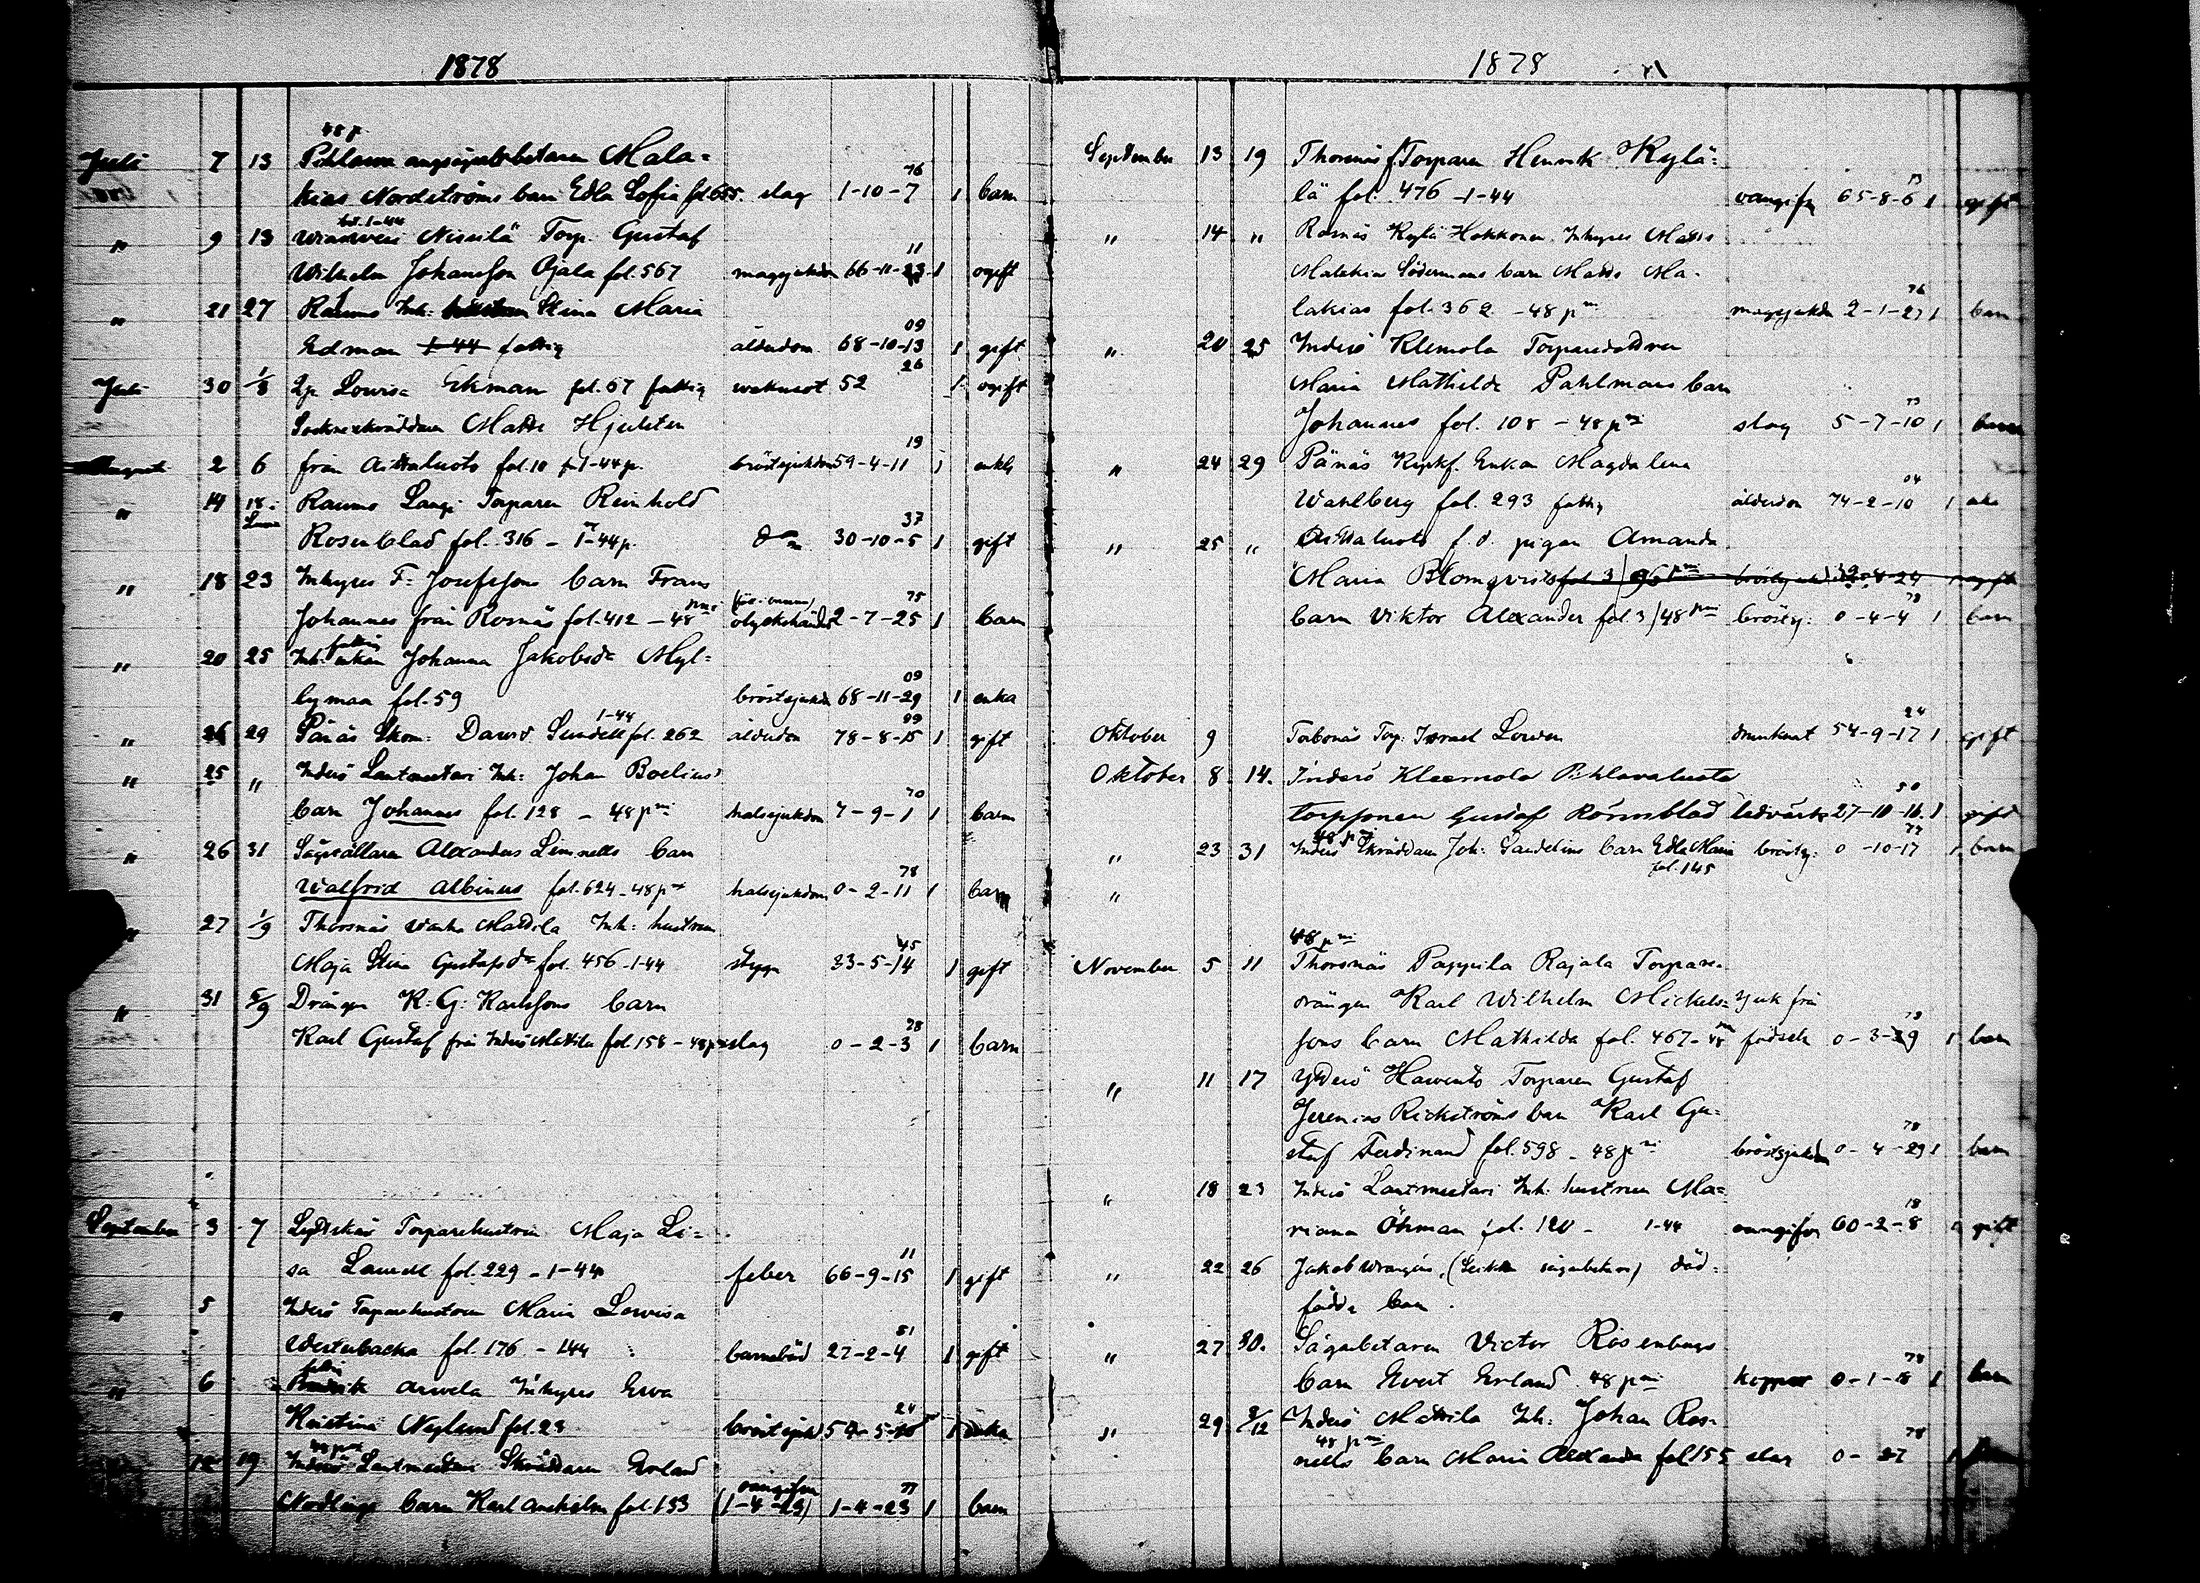 1878
48 p.
Juli 7 13 Pihlava ångsågsarbetaren Mala=
76
kias Nordströms barn Edla Sofia fol 655. slag 1-10-7 1 barn
" 9 13 Nissilä Torp. Gustaf
11
Wilhelm Johansson Ojala fol. 567 magsjukdom 66-11-23 1 ogift
" 21 27 Raumo Inh: Stina Maria
09
Edman 1-44 fattig ålderdom 68-10-13 1 gift
26
Juli 30 1/8 Lovisa Ekman fol. 67 fattig 52 1 ogift
Sockneskräddaren Matts Hjulsten
19
Augusti 2 6 från Aittaluoto fol. 10 1-44 p. bröstsjukdom 59-4-11 1 enkl
" 14 18 Raumo Langi Torparen Reinhold
37
Rosenblad fol. 316 - 1-44 p. 30-10-5 1 gift
" 18 23 Inhyses F: Josefssons barn Frans
75
Johannes från Rosnäs fol. 412 - 48 olyckshändelse 2-7-25 1 barn
fattig
" 20 25 Inh: enkan Johanna Jakobsdr Myl=
09
lymaa fol. 59 bröstsjukdom 68-11-29 1 enka
1-44 99
" 26 29 Pänäs Skom: David Sundell fol. 262 ålderdom 78-8-15 1 gift
" 25 " Inderö Lantmeetari Inh: Johan Boelius'
70
barn Johannes fol. 128 - 48 pmi halssjukdom 7-9-1 1 barn
" 26 31 Sågställaren Alexanders Limnells barn
78
Walfrid Albinus fol. 624 - 48 p halssjukdom 0-2-11 1 barn
" 27 1/9 Thorsnäs Mattila Inh: hustrun
45
Maja Stina Gustafsdr fol. 456 - 1-44 23-5-14 1 gift
" 31 5/9 Drängen K: G: Karlssons barn
78
Karl Gustaf från Inderö Mattila fol 158 - 48 p slag 0-2-3 1 barn
September 3 7 Torparehustrun Maja Li=
11
sa fol. 229 - 1-44 feber 66-9-15 1 gift
" 5 Inderö Torparehustrun Maria Lovisa
51
Westerbacka fol. 176 - 144 barnsbörd 27-2-4 1 gift
" 6 Arwela Inhyses Ewa
24
Kristina Neglund fol. 28 bröstsjuk 54-5- 1 enka
48 pmi
19 Inderö Lantmeetari Skräddaren Erland
77
Nordlings barn Karl fol. 153 vangifva (1-4-23) 1-4-23 1 barn
1878
September 13 19 Thorsnäs Torparen Henrik Kylä=
13
lä fol. 476 - 1-44 65-8-6 1 gift
" 14 " Rosnäs Kylä Hakkonen Inhyses Matts
Malakias Södermans barn Matts Ma-
76
lakias fol. 362 - 48 pmi magsjukdom 2-1-27 1 barn
" 20 25 Inderö Klemola Torparedottren
Maria Mathilda Pahlmans barn
73
Johannes fol. 108 - 48 pmi slag 5-7-10 1 barn
" 24 29 Pänäs Enkan Magdalena
04
Wahlberg fol. 293 fattig ålderdom 74-2-10 1 enka
" 25 " Aittaluoto f.d. pigan Amanda
Maria Blomqvists fol 3
78
barn Viktor Alexander fol 3/48 pmi bröstsj: 0-4-4 1 barn
24
Oktober 9 Torbonäs Torp: Israel Lovén drunknat 54-9-17 1 gift
Oktober 8 14. Inderö Kleemola Pihlavaluoto
50
torpsonen Gustaf Rörnblad ledvärk 27-10-16. 1 gift
48 pmi 77
" 23 31 Inderö Skräddaren Joh: Sandelins barn Edla Maria bröstsj: 0-10-17 1 barn
fol. 145
"
48 pmi
November 5 11 Thorsnäs Pappila Rajala Torpare-
drängen Karl Wilhelm Mickels= sjuk från
78
sons barn Mathilda fol. 467 - 48 födseln 0-3-29 1 barn
" 11 17 Ytterö Torparen Gustaf
Jeremias Rickströms barn Karl Gu=
78
staf Ferdinand fol. 598 - 48 pmi bröstsjukdom 0-4-29 1 barn
" 18 23 Inderö Lantmeetari Inh. hustrun Ma=
18
riana Öhman fol. 120 - 1-44 60-2-8 gift
" 22 26 Jakob Wrangéns, död=
födda barn.
" 27 30. Sågarbetaren Victor Rosenbergs
78
barn Evert Erland 48 pmi koppor 0-1-18 1 barn
" 29 2/12 Inderö Mattila Inh: Johan Ros-
48 pmi 78
nells barn Maria Alexandra fol 155 slag 0-27 1 barn